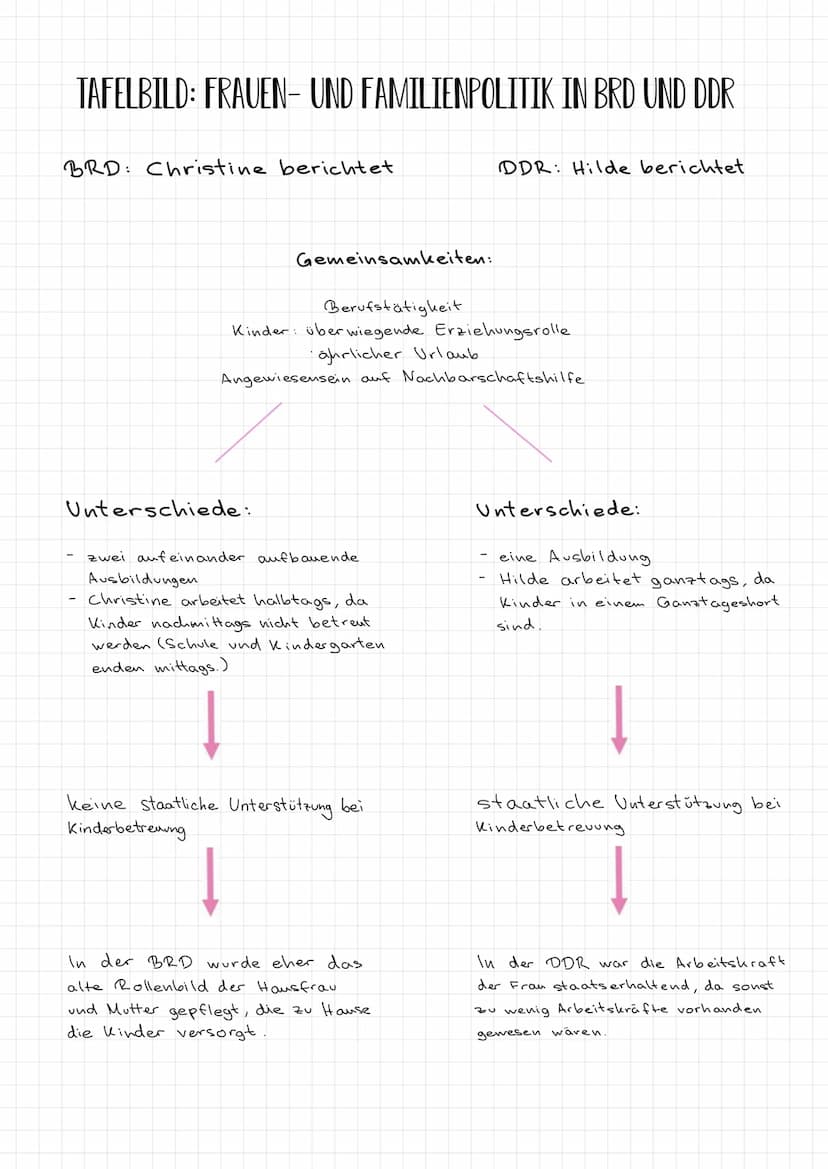 TAFELBILD: FRAUEN- UND FAMILIENPOLITIK IN BRD UND DDR
BRD: Christine berichtet
DDR: Hilde berichtet
Gemeinsamkeiten:
Berufstätigkeit
Kinder: überwiegende Erziehungsrolle
ährlicher Urlaub
Angewiesensein auf Nachbarschaftshilfe
Unterschiede:
- zwei aufeinander aufbauende
Ausbildungen
- Christine arbeitet halbtags, da
Kinder nachmittags nicht betreut
werden (Schule und Kindergarten
enden mittags.)
keine staatliche Unterstützung bei
Kinderbetreuung
In der BRD wurde eher das
alte Rollenbild der Hausfrau
und Mutter gepflegt, die zu Hause
die Kinder versorgt.
Unterschiede:
- eine Ausbildung
- Hilde arbeitet ganztags, da
Kinder in einem Ganztageshort
sind.
staatliche Unterstützung bei
Kinderbetreuung
In der DDR war die Arbeitskraft
der Frau staatserhaltend, da sonst
zu wenig Arbeitskräfte vorhanden
gewesen wären.